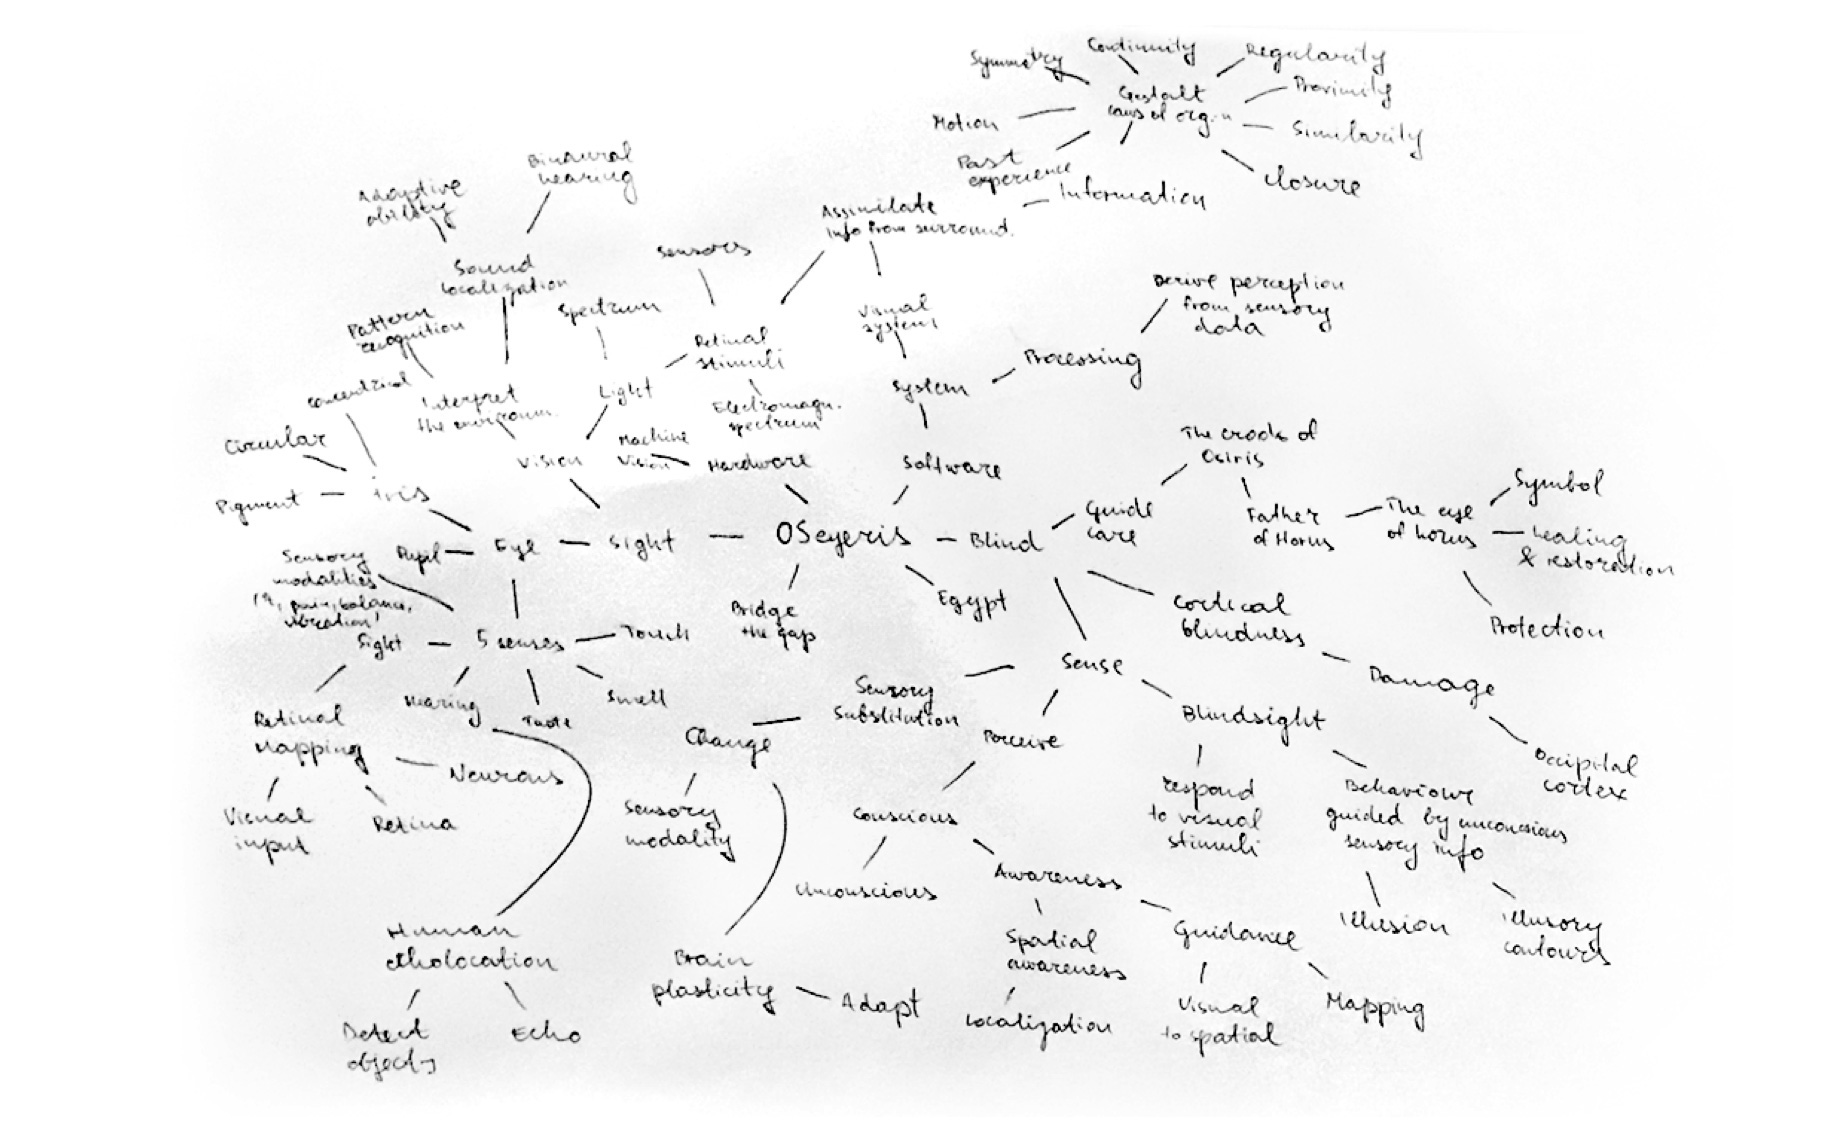 Symmetry
Continuity
Regularity
Gestalt
laws of org.
Proximity
Motion
Similarity
Past
experience
Closure
Information
Binaural
hearing
Adaptive
ability
Assimilate
info from surround.
Sensors
Sound
localization
Derive perception
from sensory
data
Spectrum
Visual
system
Pattern
recognition
Retinal
stimuli
Processing
Light
System
Interpret
the environm.
Electromagn.
spectrum
Circular
Machine
Vision
Vision
Hardware
Software
Osiris
Pigment
Iris
Symbol
Guide
care
Father
of Horus
The eye
of horus
healing
& restoration
Sensory
modalities
Pupil
Eye
Sight
OSeyeris
Blind
Egypt
Bridge
the gap
Cortical
blindness
Protection
Sight
5 senses
Touch
Sense
Damage
Hearing
Taste
Smell
Sensory
Substitution
Blindsight
Retinal
Mapping
Change
Perceive
Occipital
cortex
Neurons
Visual
input
Retina
Sensory
modality
Conscious
respond
to visual
stimuli
Behaviour
guided by unconscious
sensory info
Unconscious
Awareness
Guidance
Illusion
Illusory
contours
Human
echolocation
Brain
plasticity
Spatial
awareness
Adapt
Localization
Visual
to spatial
Mapping
Detect
objects
Echo